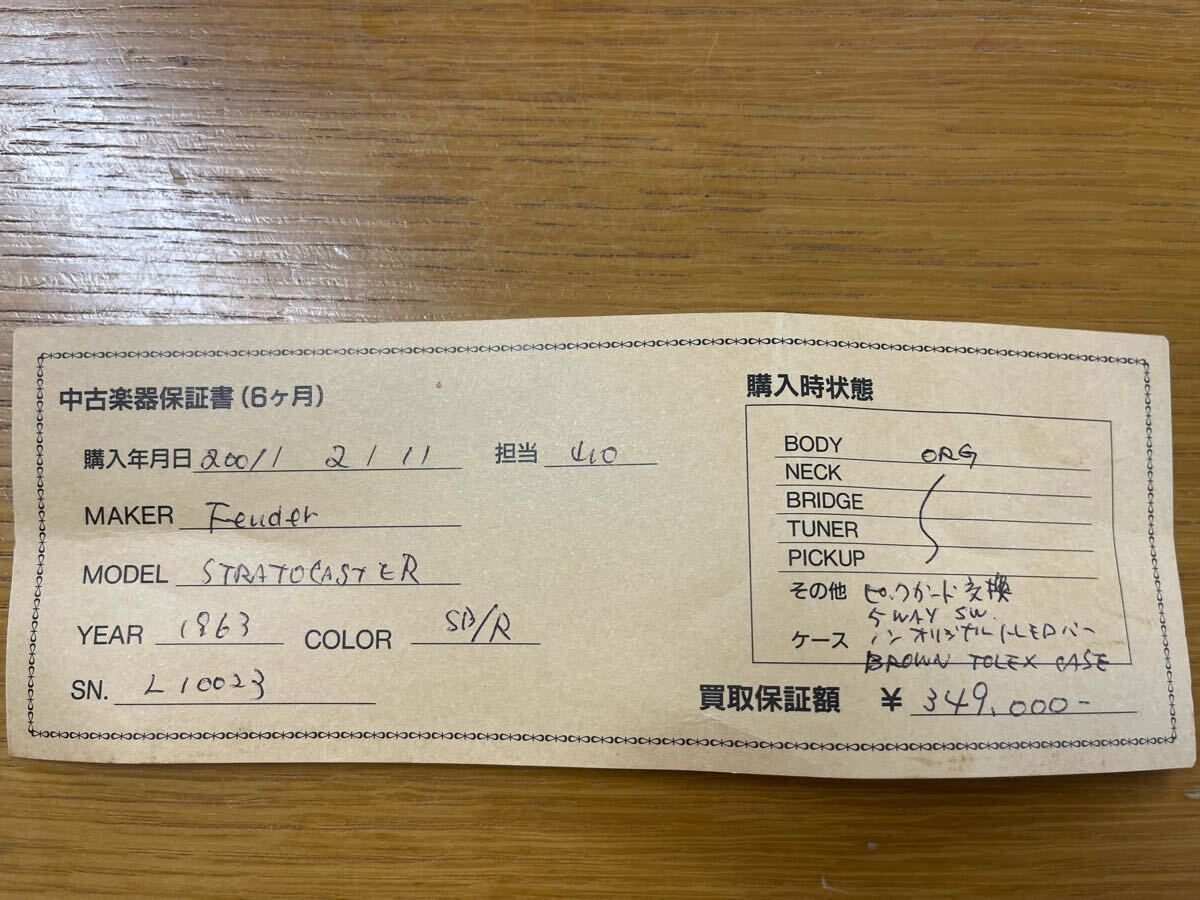 中古楽器保証書(6ヶ月)
購入年月日 2001/ 2 / 11 担当
MAKER Fender
MODEL STRATOCASTER
YEAR 1963 COLOR SB/R
SN. L10023
購入時状態
BODY ORG
NECK
BRIDGE
TUNER
PICKUP
その他 ピックガード交換
5WAY SW.
ノンオリジナルトレモロバー
ケース BROWN TOLEX CASE
買取保証額 ¥ 349,000-